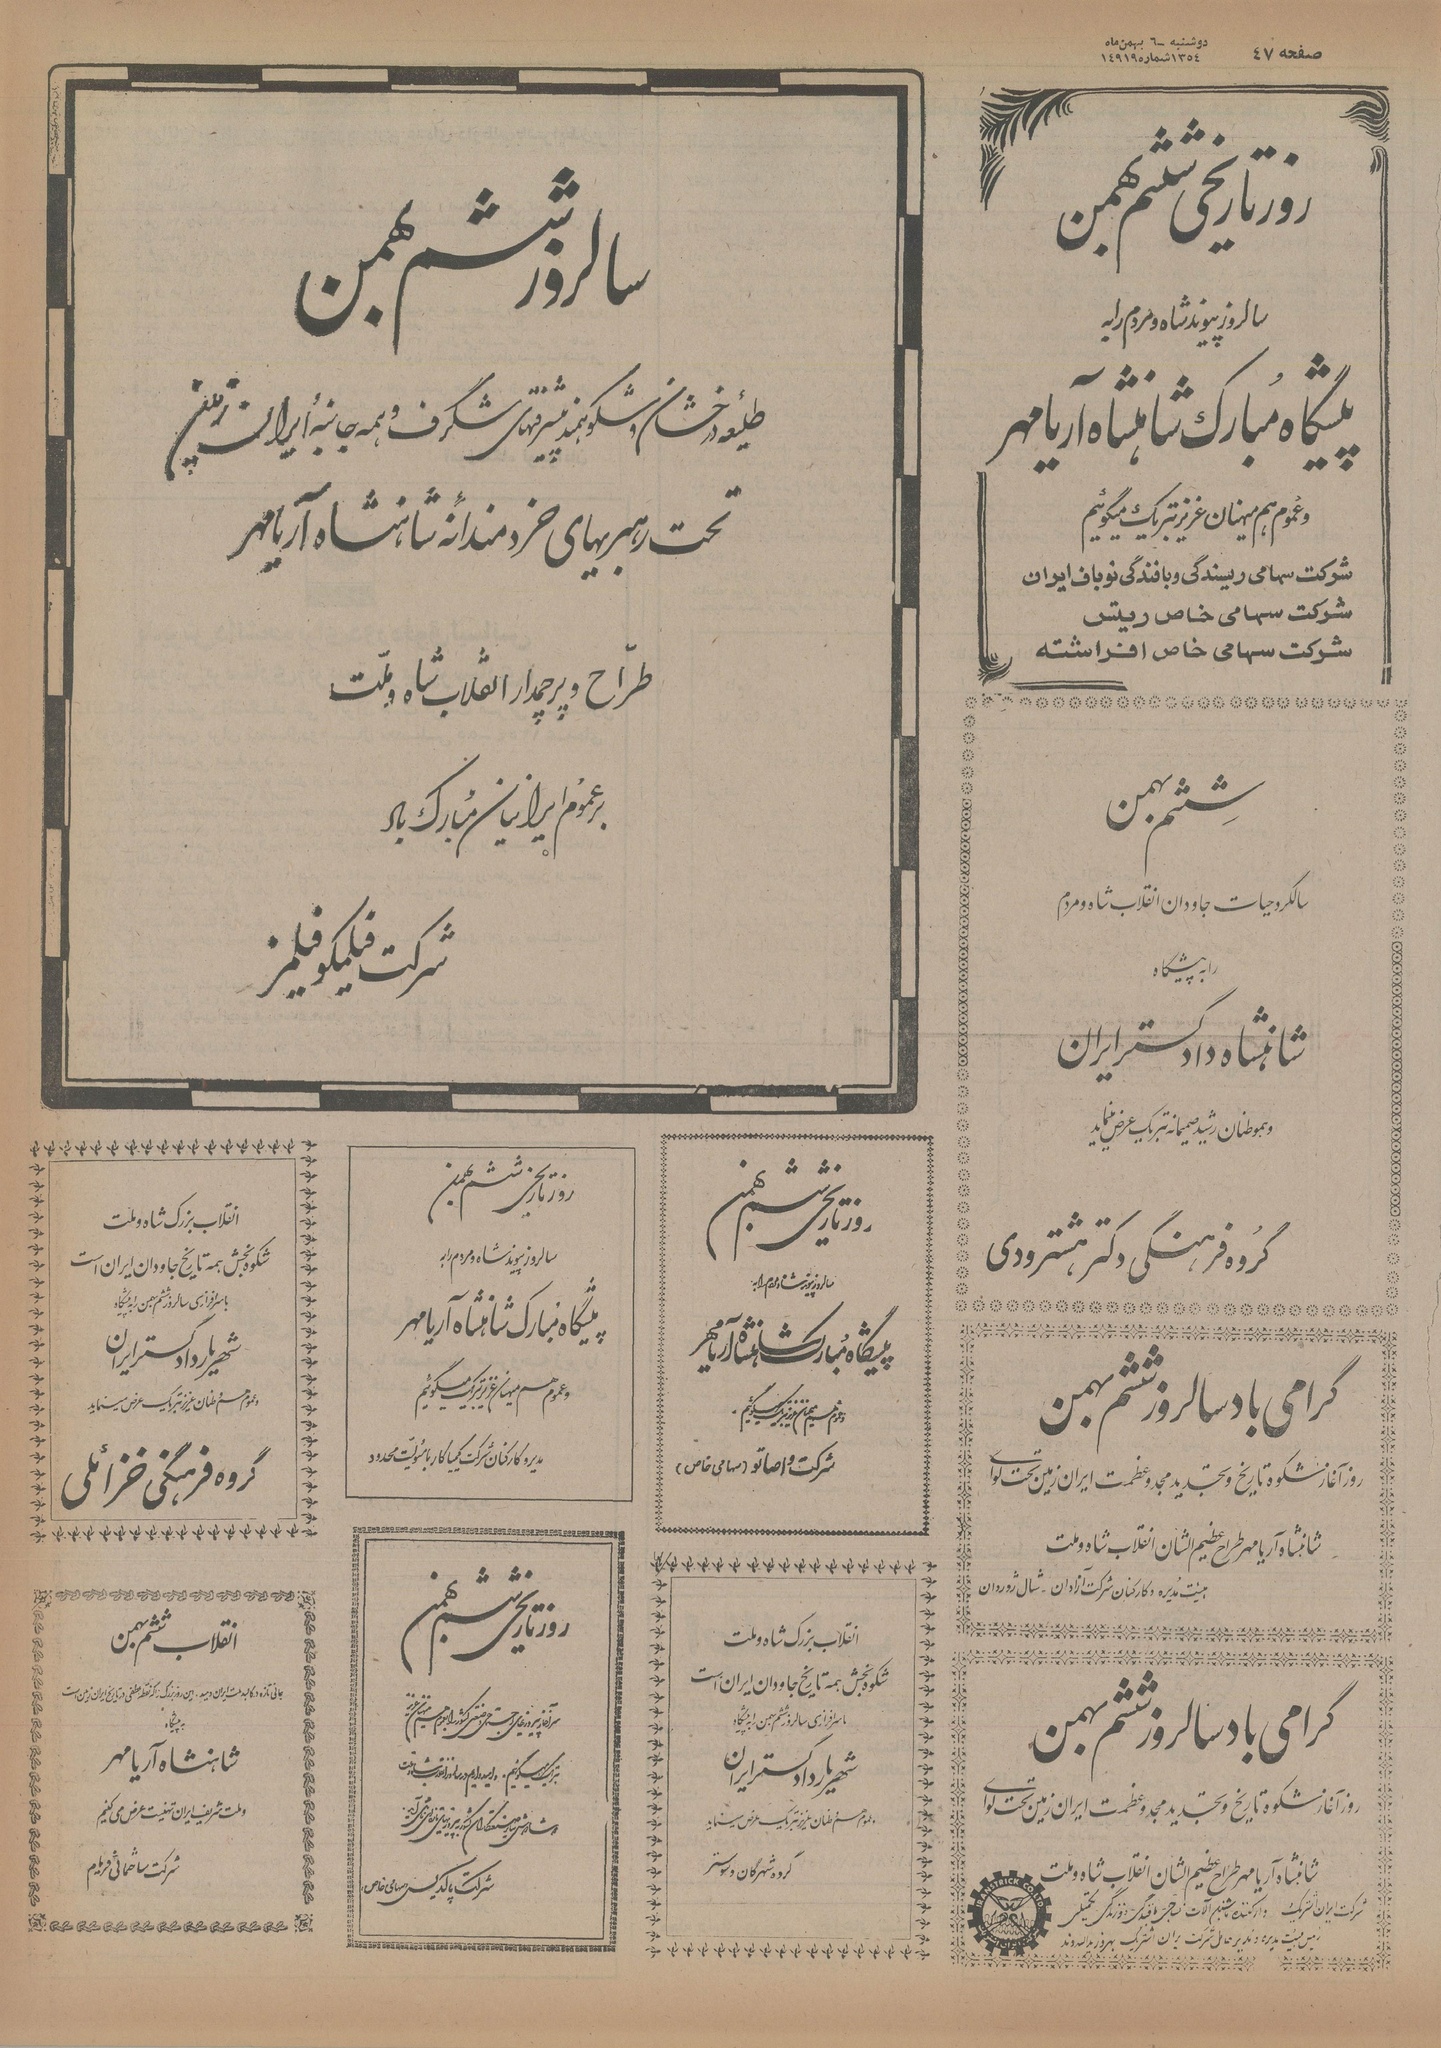 صفحه ٤٧
دوشنبه ـ ٦ بهمن ماه
١٣٥٤ شماره ١٤٩١٩
روز تاریخی ششم بهمن
سالروز پیوند شاه و مردم را به
پیشگاه مبارک شاهنشاه آریامهر
و عموم هم میهنان عزیز تبریک میگوئیم
شرکت سهامی ریسندگی و بافندگی نوباف ایران
شرکت سهامی خاص ریتس
شرکت سهامی خاص افراشته
سالروز ششم بهمن
طلیعه درخشان و شکوهمند پیشرفتهای شگرف و همه جانبه ایران زمین
تحت رهبریهای خردمندانه شاهنشاه آریامهر
طراح و پرچمدار انقلاب شاه و ملت
بر عموم ایرانیان مبارک باد
شرکت فیلمیکو فیلمز
ششم بهمن
سالگرد حیات جاودان انقلاب شاه و مردم
را به پیشگاه
شاهنشاه دادگستر ایران
و هموطنان رشید صمیمانه تبریک عرض مینماید
گروه فرهنگی دکتر هشترودی
گرامی باد سالروز ششم بهمن
روز آغاز شکوه تاریخ و تجدید مجد و عظمت ایران زمین تحت لوای
شاهنشاه آریامهر طراح عظیم الشان انقلاب شاه و ملت
هیئت مدیره و کارکنان شرکت آزادان ـ شال زوردان
گرامی باد سالروز ششم بهمن
روز آغاز شکوه تاریخ و تجدید مجد و عظمت ایران زمین تحت لوای
شاهنشاه آریامهر طراح عظیم الشان انقلاب شاه و ملت
روز تاریخی ششم بهمن
سالروز پیوند شاه و مردم را به
پیشگاه مبارک شاهنشاه آریامهر
و عموم هم میهنان عزیز تبریک میگوئیم .
شرکت واصاتو (سهامی خاص)
روز تاریخی ششم بهمن
سالروز پیوند شاه و مردم را به
پیشگاه مبارک شاهنشاه آریامهر
و عموم هم میهنان عزیز تبریک میگوئیم
مدیر و کارکنان شرکت کیمیا کار با مسئولیت محدود
انقلاب بزرگ شاه و ملت
شکوه بخش همه تاریخ جاودان ایران است
با سرافرازی سالروز ششم بهمن را به پیشگاه
شهریار دادگستر ایران
و عموم هم وطنان عزیز تبریک عرض مینماید
گروه فرهنگی خزائلی
انقلاب بزرگ شاه و ملت
شکوه بخش همه تاریخ جاودان ایران است
با سرافرازی سالروز ششم بهمن را به پیشگاه
شهریار دادگستر ایران
و عموم هم وطنان عزیز تبریک عرض مینماید
گروه شهرگان و
روز تاریخی ششم بهمن
شرکت پاکدیس (سهامی خاص)
انقلاب ششم بهمن
جانی تازه در کالبد ملت ایران دمید . این روز بزرگ را که نقطه عطفی در تاریخ ایران زمین است
به پیشگاه
شاهنشاه آریامهر
و ملت شریف ایران تهنیت عرض می کنیم
شرکت ساختمانی فریلم